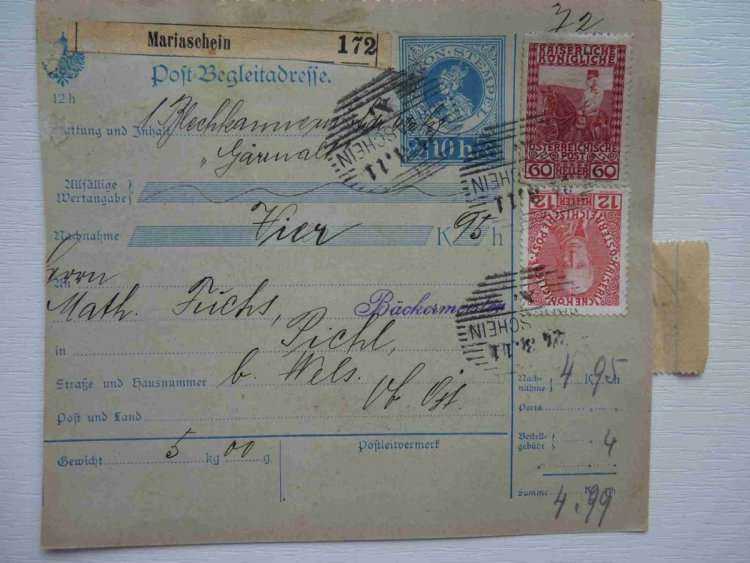 72
Mariaschein 172
KAISERLICHE
KÖNIGLICHE
Post-Begleitadresse.
12 h
10 h
ÖSTERREICHISCHE
POST
60 HELLER 60
Gattung und Inhalt
1 Blechkanne
Allfällige
Wertangabe
Nachnahme Vier K 95 h
12 HELLER 12
SCHEIN
SCHEIN
SCHEIN
An Herrn
Math. Fuchs, Bäckermeister
in Pichl,
Straße und Hausnummer b. Wels.
Post und Land Ob. Öst.
Gewicht 5 kg 00 g
Postleitvermerk
Nach-
nahme 4 K 95 h
Porto
Bestell-
gebühr 4
Summe 4.99